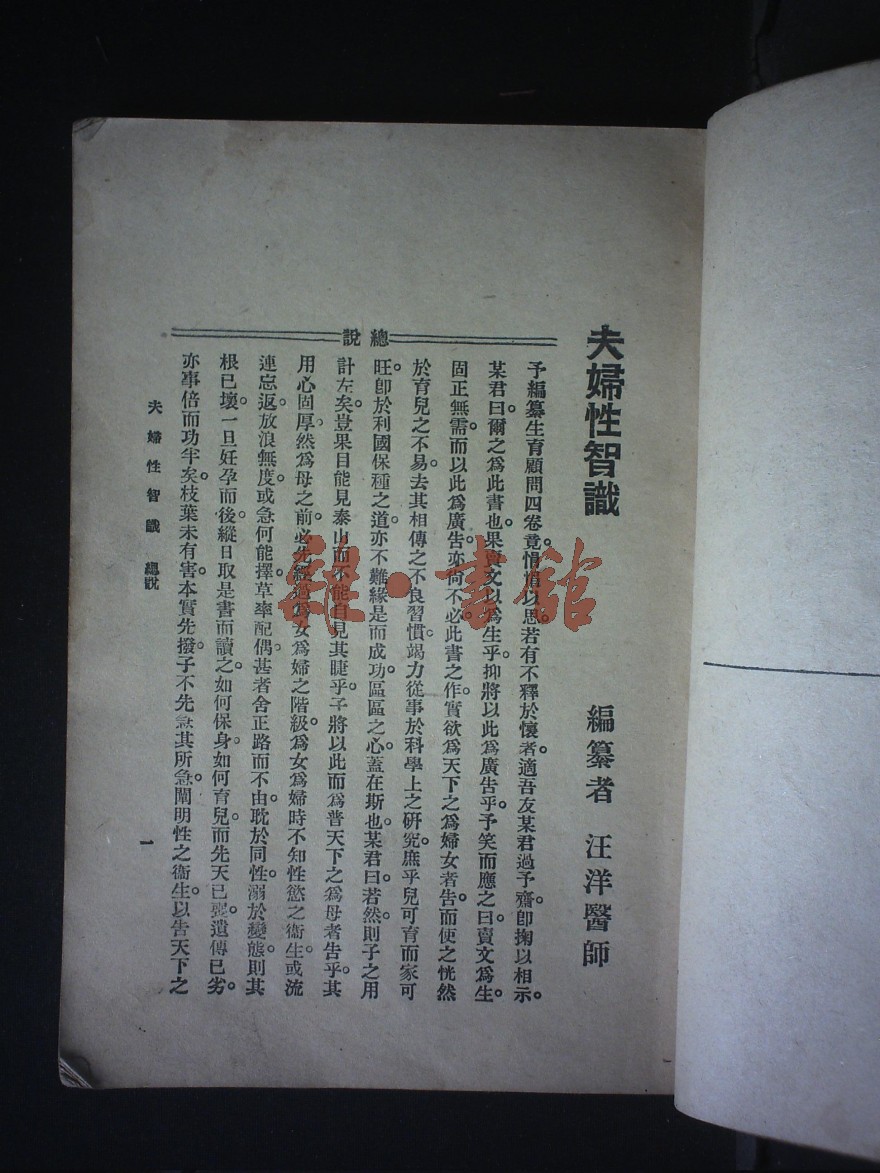 夫婦性智識
編纂者 汪洋醫師
總說
予編纂生育顧問四卷竟惜惜以思若有不釋於懷者適吾友某君過予齋卽掬以相示。
某君曰。爾之爲此書也。果賣文以爲生乎。抑將以此爲廣告乎。予笑而應之曰。賣文爲生。
固正無需。而以此爲廣告。亦尙不必。此書之作。實欲爲天下之爲婦女者告。而使之恍然
於育兒之不易。去其相傳之不良習慣。竭力從事於科學上之硏究。庶乎兒可育而家可
旺。卽於利國保種之道。亦不難緣是而成功。區區之心。蓋在斯也。某君曰。若然。則子之用
計左矣。豈果目能見泰山而不能自見其睫乎。子將以此而爲普天下之爲母者告乎。其
用心固厚。然爲母之前。必先經過爲女爲婦之階級。爲女爲婦時不知性慾之衞生。或流
連忘返。放浪無度。或急何能擇。草率配偶。甚者舍正路而不由。耽於同性。溺於變態。則其
根已壞。一旦妊孕而後。縱日取是書而讀之。如何保身。如何育兒。而先天已喪。遺傳已劣。
亦事倍而功半矣。枝葉未有害。本實先撥。子不先急其所急。闡明性之衞生。以告天下之
夫婦性智識 總說
一
雜·書館